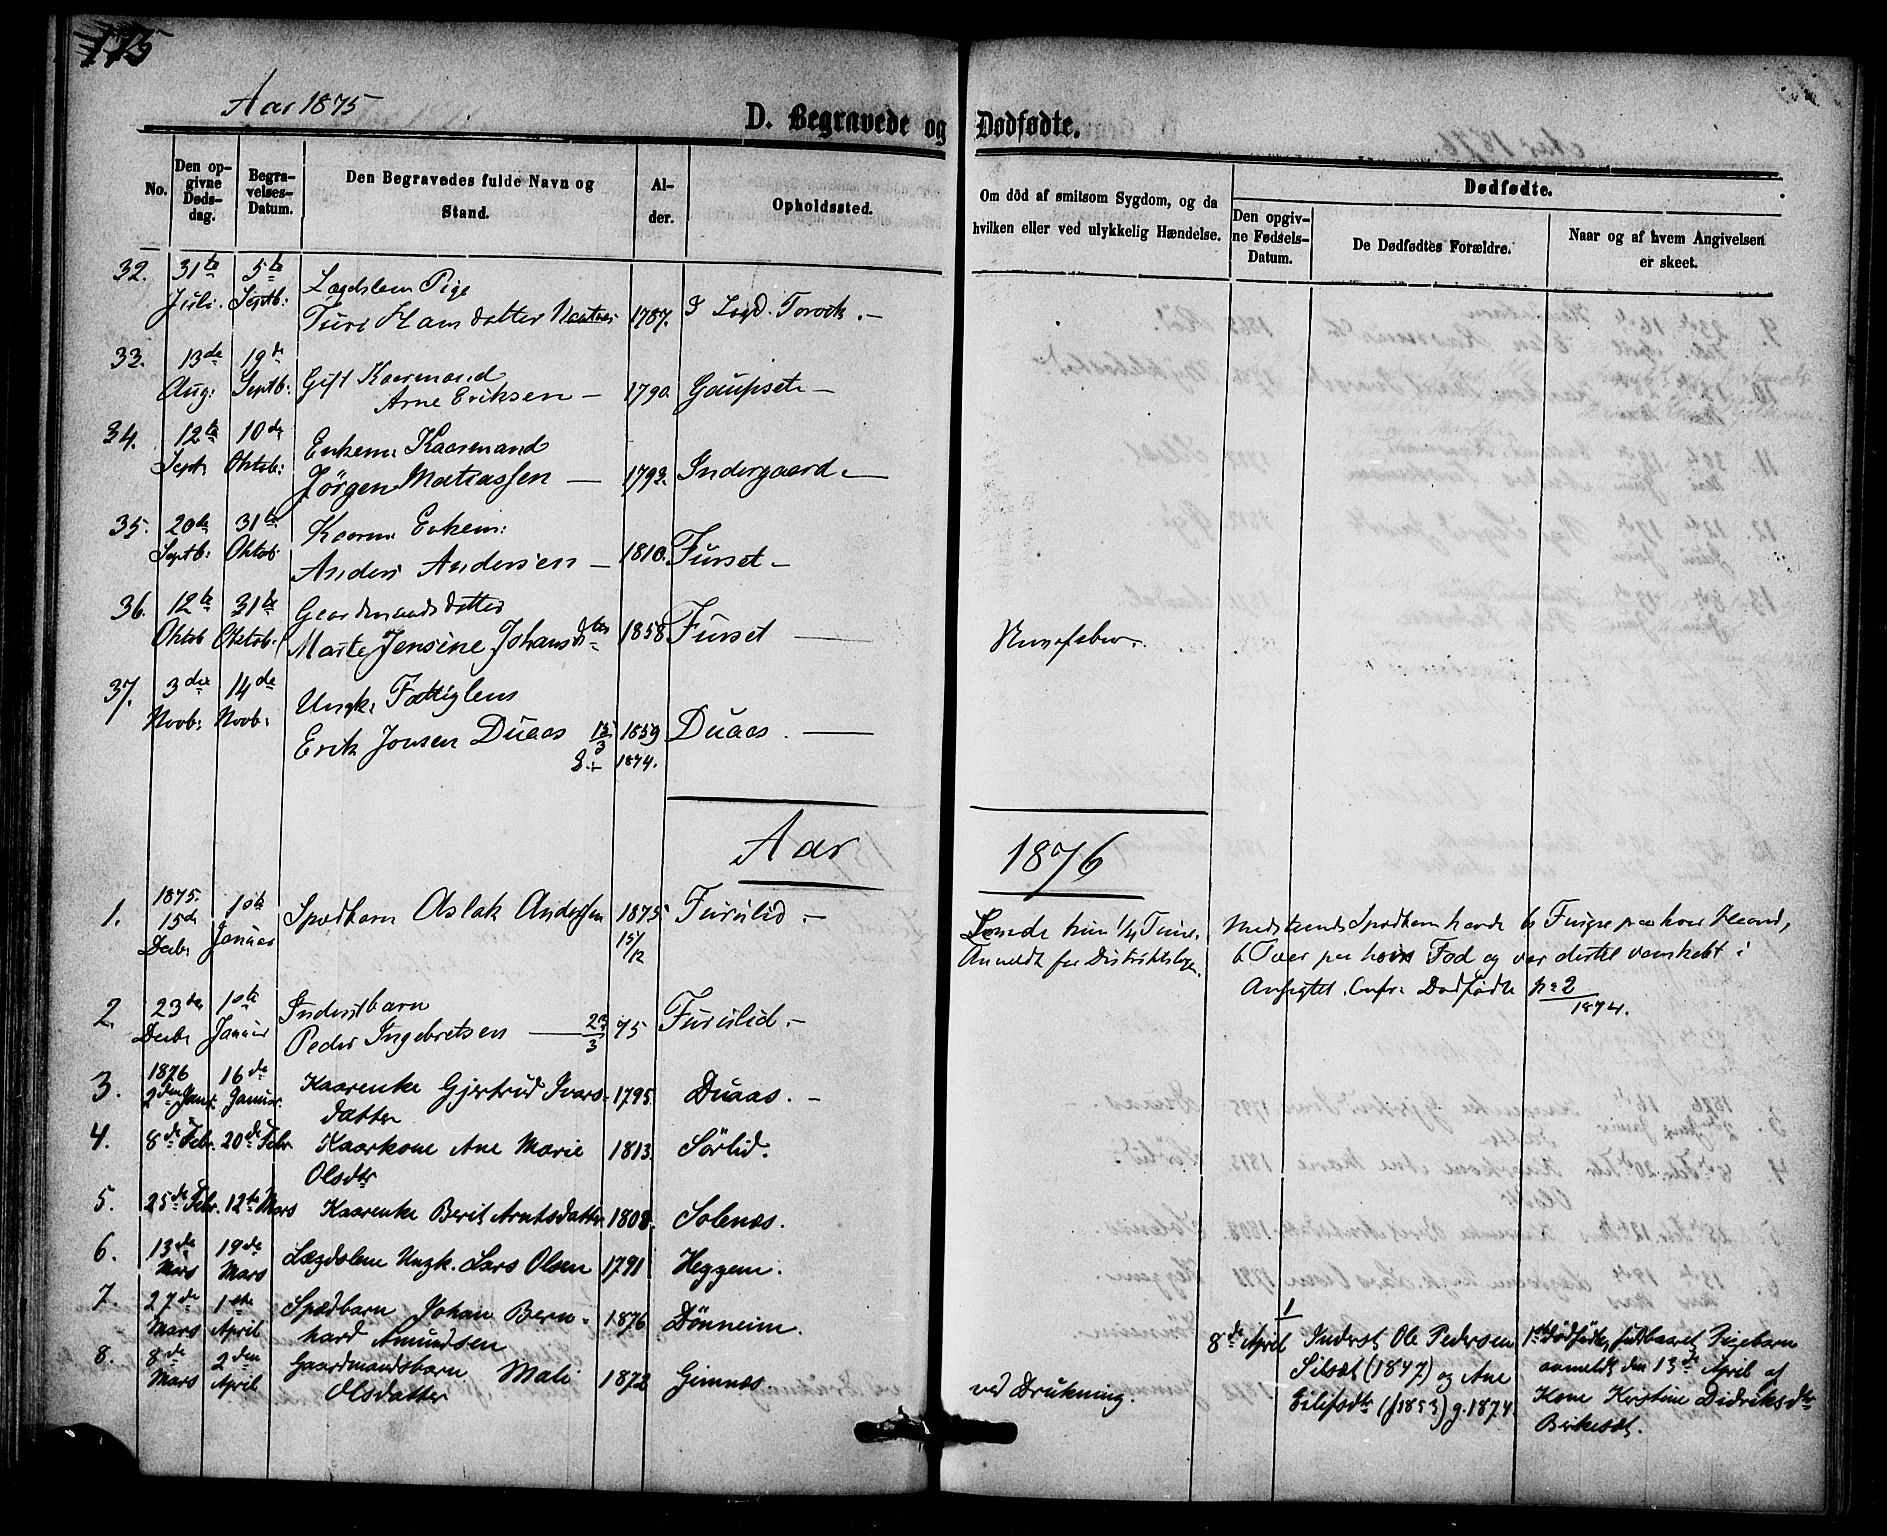 175
Aar 1875
D. Begravede og Dødfødte.
No.
Den opgivne Dødsdag.
Begravelses-Datum.
Den Begravedes fulde Navn og Stand.
Alder.
Opholdssted.
Om död af smitsom Sygdom, og da hvilken eller ved ulykkelig Hændelse.
Dødfødte.
Den opgivne Fødsels-Datum.
De Dødfødtes Forældre.
Naar og af hvem Angivelsen er skeet.
32. 31te Juli. 5te Septb: Lægdslem Pige
Turi Hansdatter 1787. I Lægd. Torvik.—
33. 13de Aug: 19de Septb: Gift Kaarmand
Arne Eriksen — 1790. Gaupset —
34. 12te Septr 10de Oktob: Enkem: Kaarmand
Jörgen Matiassen — 1793. Indergaard.—
35. 20de Septb: 31te Oktob: Kaarm: Enkem:
Anders Andersen — 1810. Furset —
36. 12te Oktob 31te Oktob: Gaardmandsdatter
Marte Jensine Johansdtr 1858 Furset — Nervefeber.
37. 3die Novb: 14de Novb: Ungk: Fattiglem
Erik Jonsen Duaas 15/3 1859 Duaas. —
1874.
Aar 1876
1. 1875. 15de Decbr 1ste Januar Spædbarn Aslak Anderssen 1875 15/12 Furulid.—
Levede kun 1/4 Time.
Anmeldt for Distriktslægen.
Spædbarn havde 6 Fingre paa hver Haand,
6 Tæer paa hver Fod og var dertil vanskabt i
Ansigtet. Cnfr: Dødfødte No 2
1874.
2. 23de Decbr 1ste Januar Inderstbarn
Peder Ingebretsen — 23/3 75 Furulid.—
3. 1876 2den Janr. 16de Januar. Kaarenke Gjertrud Ivars-
datter 1795. Duaas. —
4. 8de Febr. 20de Febr Kaarkone Ane Marie
Olsdtr 1813. Sörlid.
5. 25de Febr. 12te Mars Kaarenke Berit Arntsdatter 1808. Solenæs.
6. 13de Mars 19de Mars Lægdslem Ungk. Lars Olsen 1791 Heggem.
7. 27de Mars 1ste April Spædbarn Johan Bern-
hard Amundsen 1876 Dönneim.
8. 8de Mars 2den April Gaardmandsbarn Mali
Olsdatter 1872 Gimnæs. ved Drukning.
1
8de April Inderst Ole Pedersen
Silsæt (1847) og Ane
Eilefsdtr (f1853) g. 1874.
1ste dødfødte, fuldbaaret Pigebarn
anmeldt den 13de April af
Kone Kirstine Didriksdtr
Birkesæt.